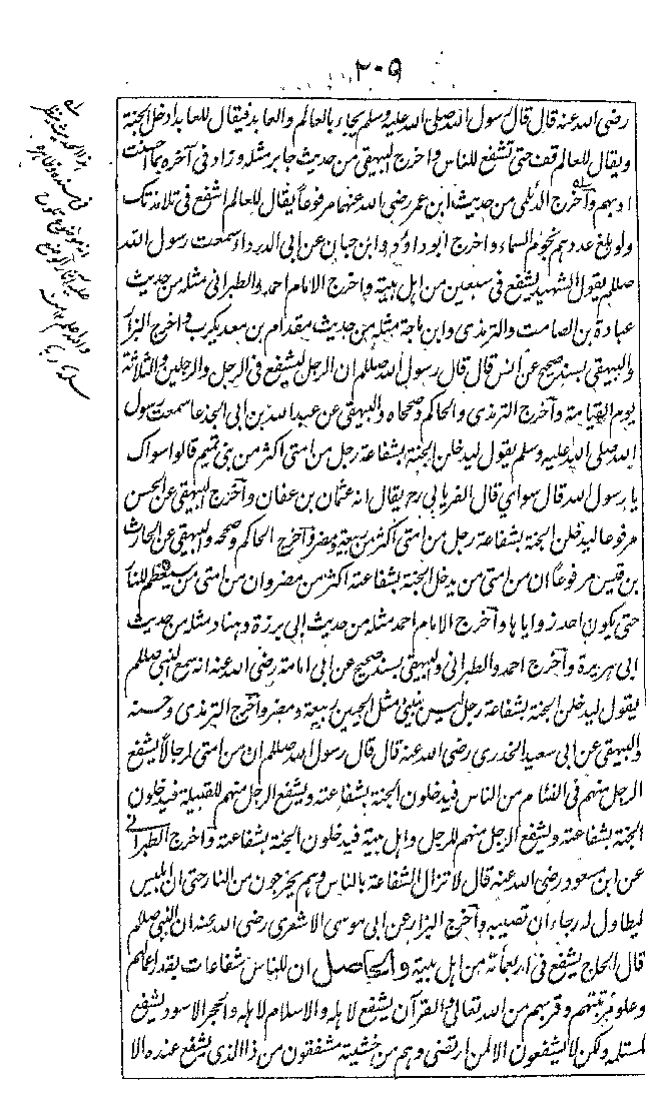 ٢٠٩
رضى الله عنه قال قال رسول الله صلى الله عليه وسلم يجاء بالعالم والعابد فيقال للعابد ادخل الجنة
ويقال للعالم قف حتى تشفع للناس واخرج البيهقى من حديث جابر مثله وزاد فى آخره بما احسنت
ادبهم وآخرج الديلمى من حديث ابن عمر رضى الله عنهما مرفوعاً يقال للعالم اشفع فى تلامذتك
ولو بلغ عددهم نجوم السماء واخرج ابو داؤد وابن حبان عن ابى الدرداء سمعت رسول الله
صللم يقول الشهيد يشفع فى سبعين من اهل بيته واخرج الامام احمد والطبرانى مثله من حديث
عبادة بن الصامت والترمذى وابن ماجة مثله من حديث مقدام بن معد يكرب واخرج البزار
والبيهقى بسند صحيح عن انس قال قال رسول الله صللم ان الرجل ليشفع فى الرجل والرجلين والثلاثة
يوم القيامة وآخرج الترمذى والحاكم وصححاه والبيهقى عن عبد الله بن ابى الجذعا سمعت رسول
الله صلى الله عليه وسلم يقول ليدخلن الجنة بشفاعة رجل من امتى اكثر من بنى تميم قالوا سواك
يا رسول الله قال سواى قال الفريابى رح يقال انه عثمان بن عفان وآخرج البيهقى عن الحسن
مرفوعا ليدخلن الجنة بشفاعة رجل من امتى اكثر من ربيعة ومضر وآخرج الحاكم وصححه والبيهقى عن الحارث
بن قيس مرفوعاً ان من امتى من يدخل الجنة بشفاعته اكثر من مضر وان من امتى من سيعظم للنار
حتى يكون احد زواياها وآخرج الامام احمد مثله من حديث ابى برزة وهناد مثله من حديث
ابى هريرة وآخرج احمد والطبرانى والبيهقى بسند صحيح عن ابى امامة رضى الله عنه انه سمع النبى صللم
يقول ليدخلن الجنة بشفاعة رجل ليس بنبى مثل الحيين ربيعة ومضر وآخرج الترمذى وحسنه
والبيهقى عن ابى سعيد الخدرى رضى الله عنه قال قال رسول الله صللم ان من امتى لرجالاً يشفع
الرجل منهم فى الفئام من الناس فيدخلون الجنة بشفاعته ويشفع الرجل منهم للقبيلة فيدخلون
الجنة بشفاعته ويشفع الرجل منهم للرجل واهل بيته فيدخلون الجنة بشفاعته واخرج الطبرانى
عن ابن مسعود رضى الله عنه قال لا تزال الشفاعة بالناس وهم يخرجون من النار حتى ان ابليس
ليطاول له رجاء ان تصيبه وآخرج البزار عن ابى موسى الاشعرى رضى الله عنه ان النبى صللم
قال الحاج يشفع فى اربعمأته من اهل بيته والحاصل ان للناس شفاعات بقدر اعمالهم
وعلو مرتبتهم وقربهم من الله تعالى والقرآن يشفع لاهله والاسلام لاهله والحجر الاسود يشفع
لمستلمه ولكن لا يشفعون الا لمن ارتضى وهم من خشيته مشفقون من ذا الذى يشفع عنده الا